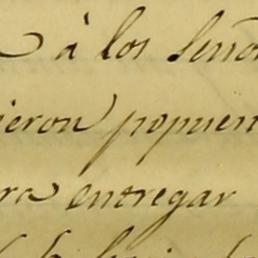 à los Seño
ieron popuen
ra entregar